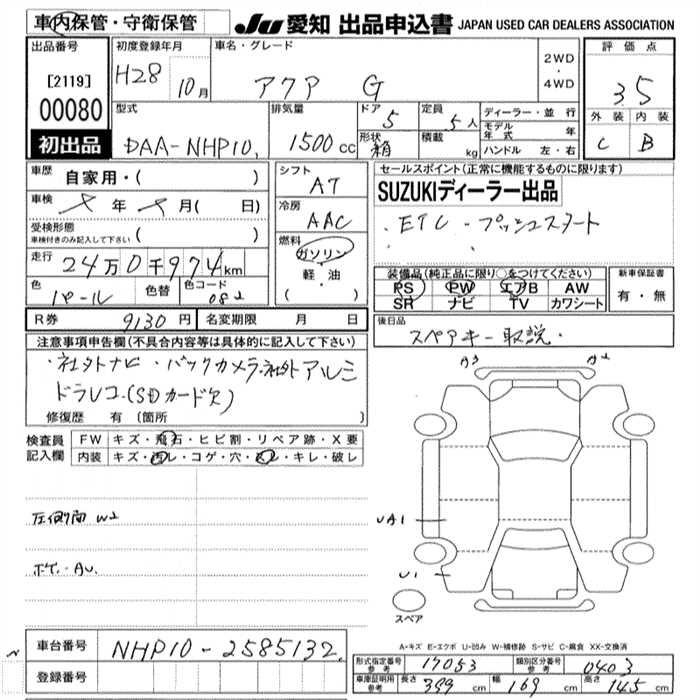 車内保管・守衛保管
JU 愛知 出品申込書 JAPAN USED CAR DEALERS ASSOCIATION
出品番号 初度登録年月 車名・グレード 2WD ・ 4WD 評価点
[2119] H28 10月 アクア G 3.5
00080 型式 排気量 ドア 5 定員 5人 ディーラー・並行 外装 内装
初出品 DAA-NHP10 1500cc 形状 箱 積載 kg モデル年式 年 C B
ハンドル 左・右
車歴 自家用・( ) シフト AT セールスポイント(正常に機能するものに限ります)
車検 年 月( 日) 冷房 AAC SUZUKIディーラー出品
受検形態 車検付きのみ記入して下さい ( ) ・ETC ・プッシュスタート
走行 24万0千974km 燃料 ガソリン・軽・油 ( )
装備品(純正品に限り○をつけてください) 新車保証書
色 パール 色替 色コード PS PW エアB AW 有・無
SR ナビ TV カワシート
R券 9130円 名変期限 月 日 後日品
スペアキー 取説・
注意事項申告欄(不具合内容等は具体的に記入して下さい)
・社外ナビ・バックカメラ・社外アルミ
ドラレコ・(SDカード欠)
修復歴 有 (箇所 )
A3 A2
検査員記入欄 FW キズ・飛石・ヒビ割・リペア跡・X要
内装 キズ・汚レ・コゲ・穴・スレ・キレ・破レ
左側面 W2
UA1
ボデー・AU
U1
スペア
A-キズ E-エクボ U-凹み W-補修跡 S-サビ C-腐食 XX-交換済
車台番号 NHP10-2585132
形式指定番号 参考 17053 類別区分番号 参考 0403
登録番号
車庫証明用 参考 長さ 399cm 幅 169cm 高さ 145cm